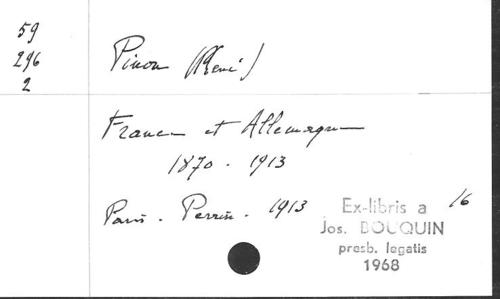 59
296
2
Pinon (René)
France et Allemagne
1870 - 1913
Paris - Perrin - 1913
16
Ex-libris a
Jos. BOUQUIN
presb. legatis
1968